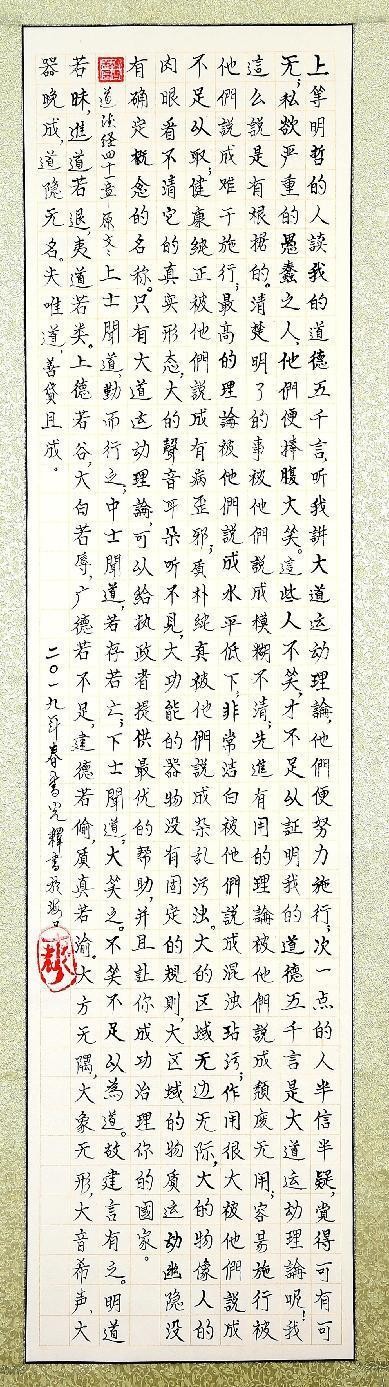 上等明哲的人读我的道德五千言,听我讲大道运动理論,他們便努力施行;次一点的人半信半疑,覚得可有可
无;私欲严重的愚蠢之人,他們便捧腹大笑。這些人不笑,才不足以証明我的道德五千言是大道运动理論呢!我
這么説是有根据的。清楚明了的事被他們説成模糊不清;先進有用的理論被他們説成頹废无用;容易施行被
他們説成难于施行;最高的理論被他們説成水平低下;非常洁白被他們説成混浊玷污;作用很大被他們説成
不足以取;健康純正被他們説成有病歪邪;质朴純真被他們説成杂乱污浊。大的区域无边无际,大的物像人的
肉眼看不清它的真实形态,大的聲音耳朵听不見,大功能的器物没有固定的規則,大区域的物质运动幽隐没
有确定概念的名称。只有大道运动理論,可以給执政者提供最优的帮助,并且让你成功治理你的國家。
道德经四十一章原文:上士聞道,勤而行之;中士聞道,若存若亡;下士聞道,大笑之。不笑不足以為道。故建言有之。明道
若昧,進道若退,夷道若类。上德若谷,大白若辱,广德若不足,建德若偷,质真若渝。大方无隅,大象无形,大音希声,大
器晚成,道隐无名。夫唯道,善贷且成。
二〇一九年春